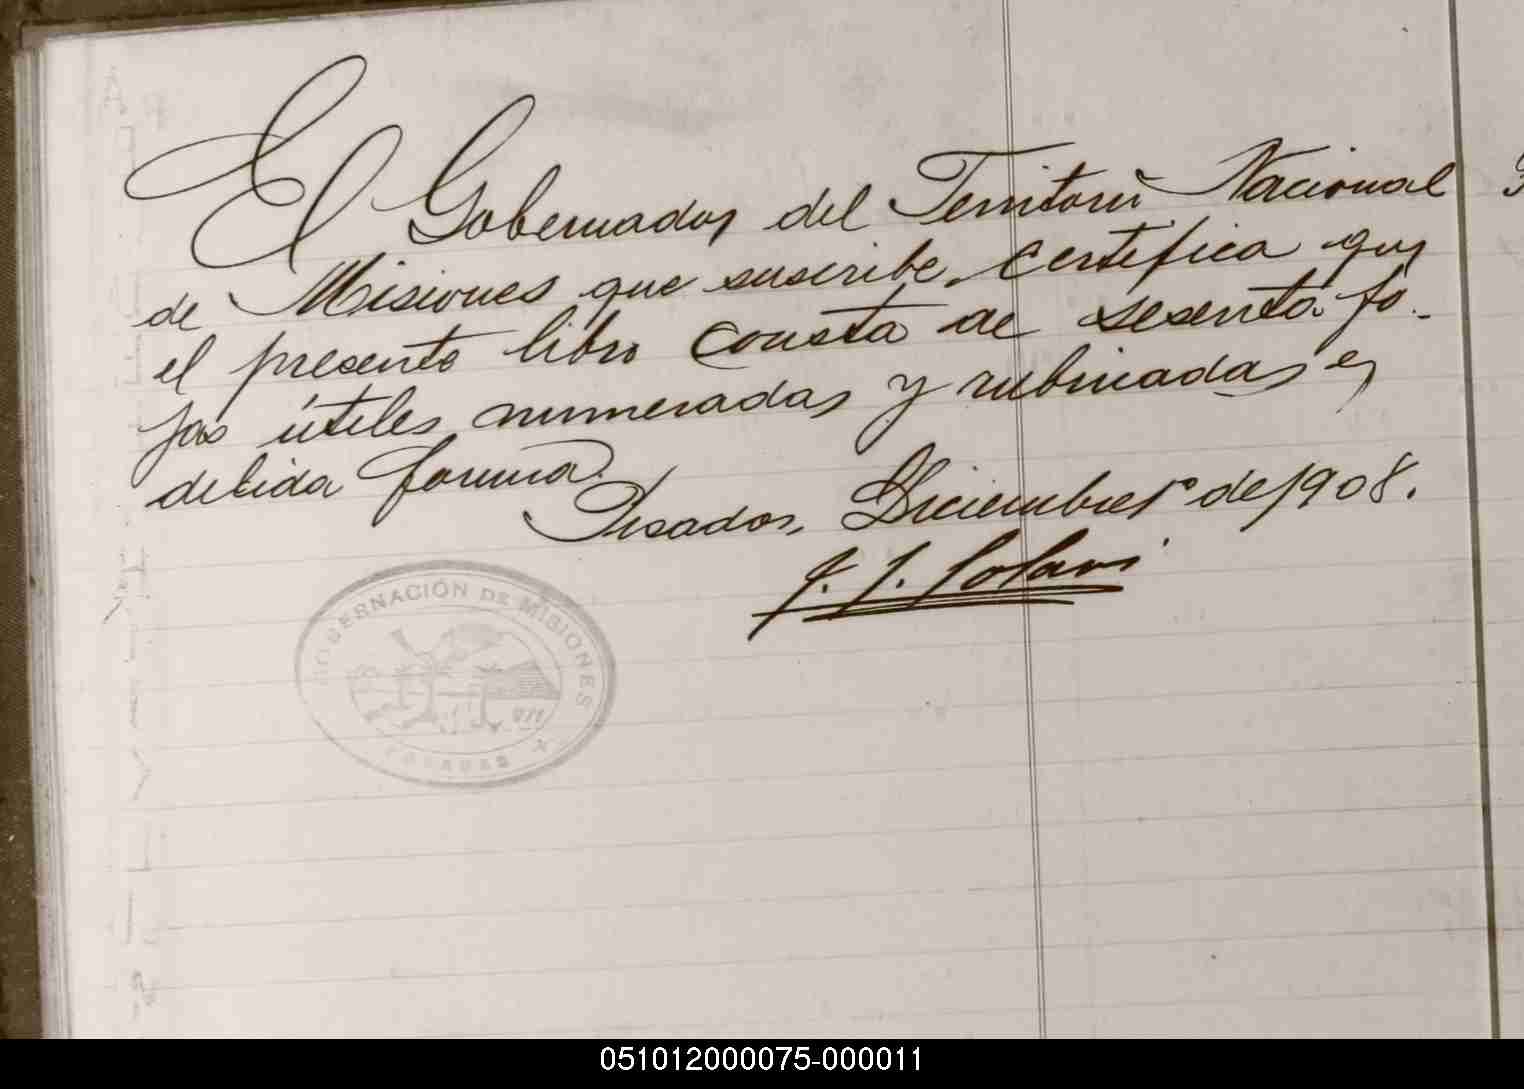 El Gobernador del Territorio Nacional
de Misiones que suscribe, certifica que
el presente libro consta de sesenta fo-
jas útiles numeradas y rubricadas en
debida forma.
Posadas, Diciembre 1º de 1908.
J. J. Solari
GOBERNACIÓN DE MISIONES
POSADAS
051012000075-000011